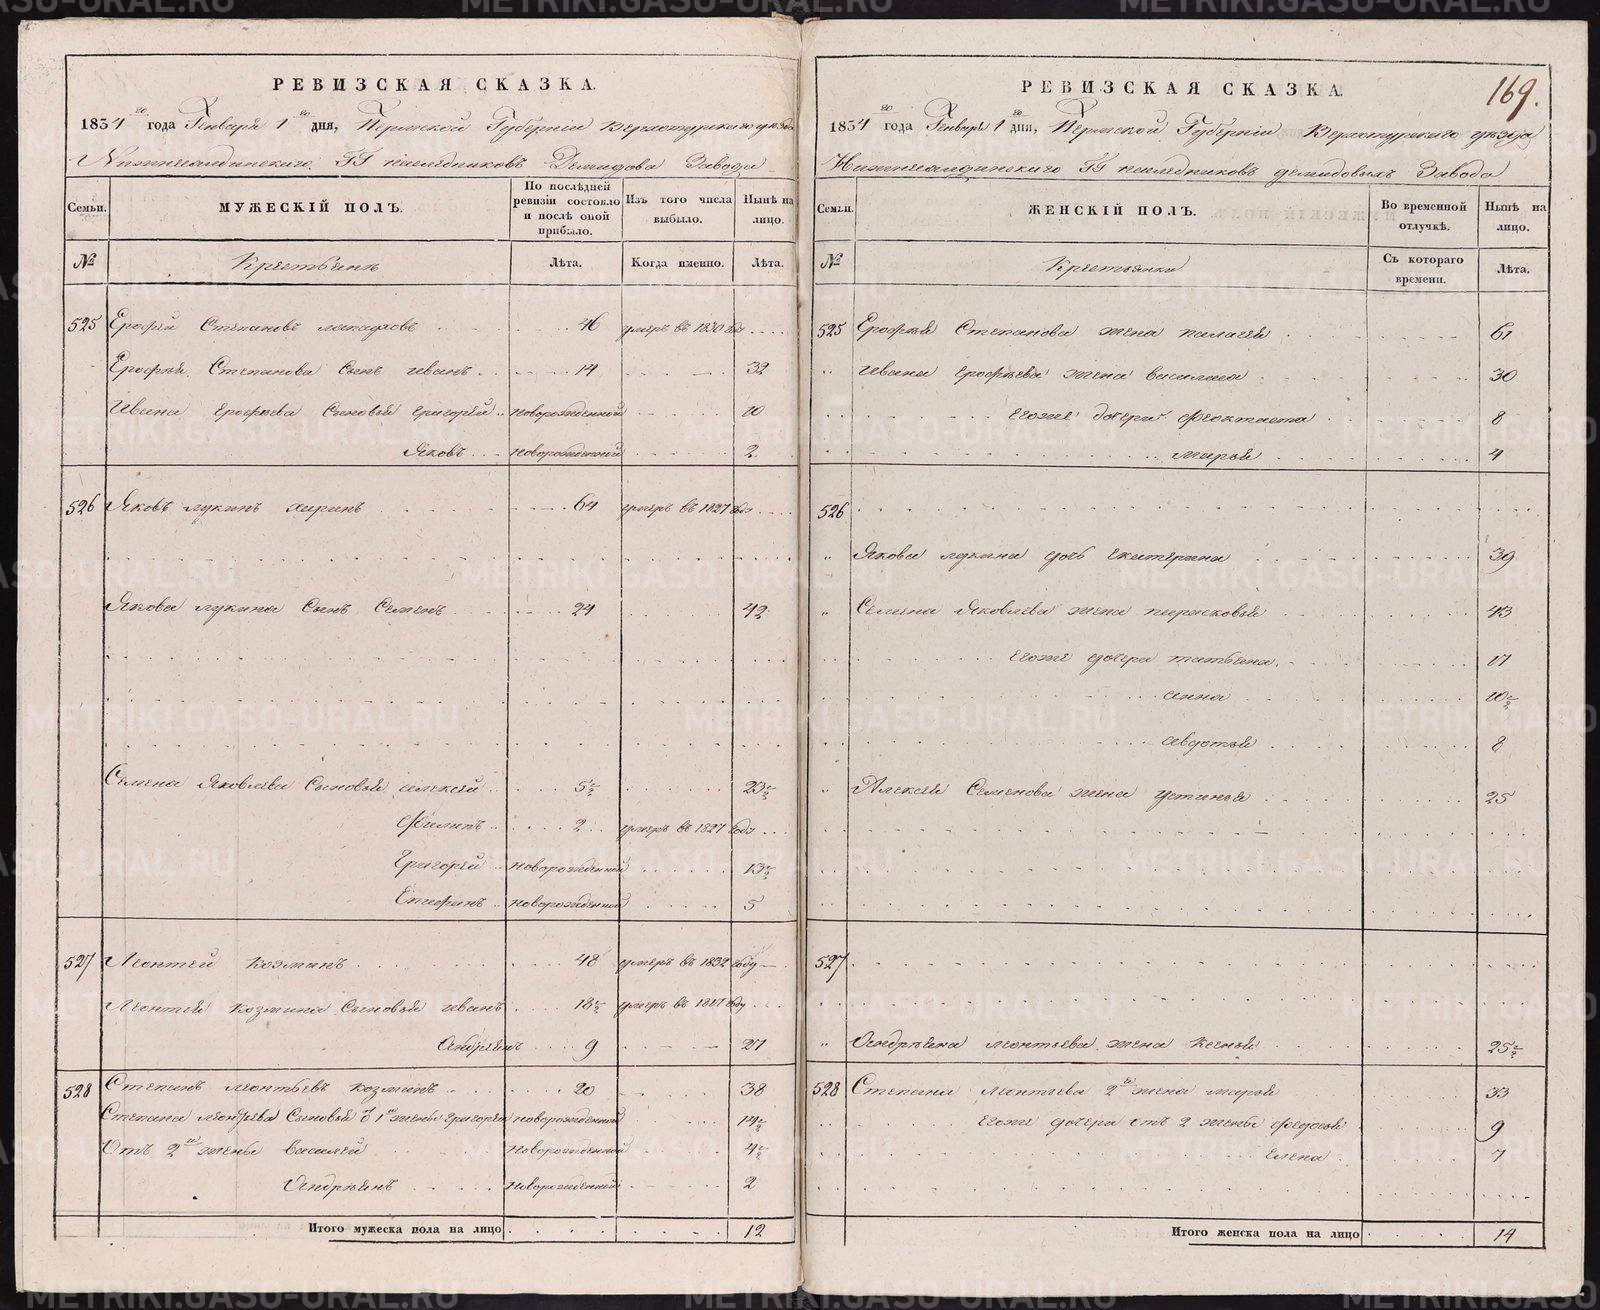 РЕВИЗСКАЯ СКАЗКА.
1834 го года Генваря 1 го дня, Пермской Губернiи Верхотурскаго уезда
Г.Г. наследниковъ Демидова Завода
Семьи.
МУЖЕСКIЙ ПОЛЪ.
По послѣдней ревизiи состояло и послѣ оной прибыло.
Изъ того числа выбыло.
Нынѣ на лицо.
№
Крестьянъ
Лѣта.
Когда именно.
Лѣта.
525 Ерофей Степановъ 46 умеръ въ 1830 году
Ерофѣя Степанова Сынъ иванъ 14 32
Ивана Ерофѣева Сыновья григорей новорожденной 10
Яковъ новорожденной 2
526 Яковъ лукинъ 64 умеръ въ 1827 году
Якова лукина Сынъ Семенъ 24 42
Семена Яковлева Сыновья алексей 5½ 23½
Филипъ 2 умеръ въ 1827 году
Григорей новорожденной 13½
новорожденной 5
527 Леонтей козминъ 48 умеръ въ 1832 году
Леонтья козмина Сыновья иванъ 18½ умеръ въ году
Андреянъ 9 27
528 Степанъ леонтьевъ козминъ 20 38
Степана леонтьева Сыновья от 1й жены григорей новорожденной 14½
Отъ 2й жены василей новорожденной 4½
Андреянъ новорожденной 2
Итого мужеска пола на лицо 12
169.
РЕВИЗСКАЯ СКАЗКА.
1834 го года Генваря 1 го дни, Пермской Губернiи Верхотурскаго уезда
ГГ наследниковъ демидовыхъ Завода
Семьи.
ЖЕНСКIЙ ПОЛЪ.
Во временной отлучкѣ.
Нынѣ на лицо.
№
Крестьянки
Съ котораго времени.
Лѣта.
525 Ерофѣя Степанова жена палагея 61
" Ивана Ерофѣева жена василиса 30
Егоже дочери феоктиста 8
марья 4
526
" Якова лукина дочь екатерина 39
" Семена Яковлева жена парасковья 43
Егоже дочери татьяна 17
анна 10½
авдотья 8
" Алексея Семенова жена устинья 25
527
" Андреяна леонтьева жена 25½
528 Степана леонтьева 2я жена марья 33
Егоже дочери отъ 2 жены федосья 9
Елена 7
Итого женска пола на лицо 14
METRIKI.GASO-URAL.RU